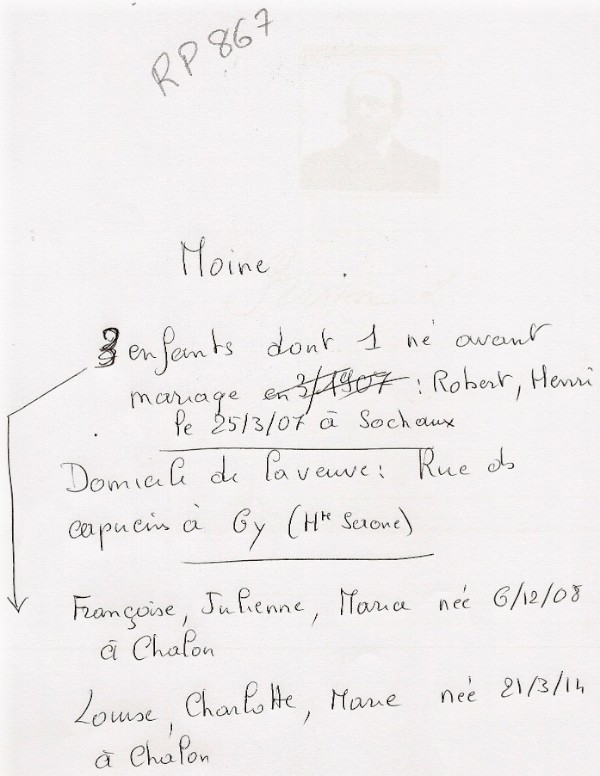 RP 867
Moine
3 enfants dont 1 né avant
mariage en 3/1907 : Robert, Henri
le 25/3/07 à Sochaux
Domicile de la veuve : Rue des
capucins à Gy (Hte Saone)
Françoise, Julienne, Maria née 6/12/08
à Chalon
Louise, Charlotte, Marie née 21/3/14
à Chalon